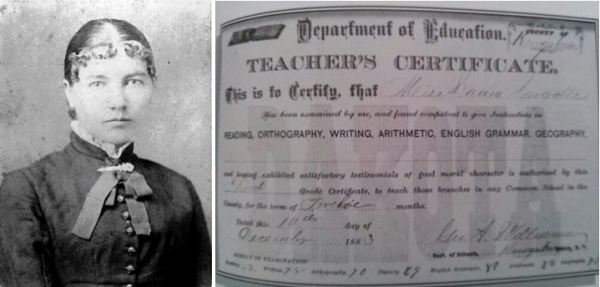 Department of Education.
TEACHER'S CERTIFICATE.
This is to Certify, that Miss Laura Ingalls
Has been examined by me, and found competent to give Instruction in
READING, ORTHOGRAPHY, WRITING, ARITHMETIC, ENGLISH GRAMMAR, GEOGRAPHY,
and having exhibited satisfactory testimonials of good moral character is authorized by this
Grade Certificate, to teach those branches in any Common School in the
County, for the term of Twelve months.
Dated this 10th day of
December 1883
Geo. A. Williams
Supt. of Schools,
RESULT OF EXAMINATION